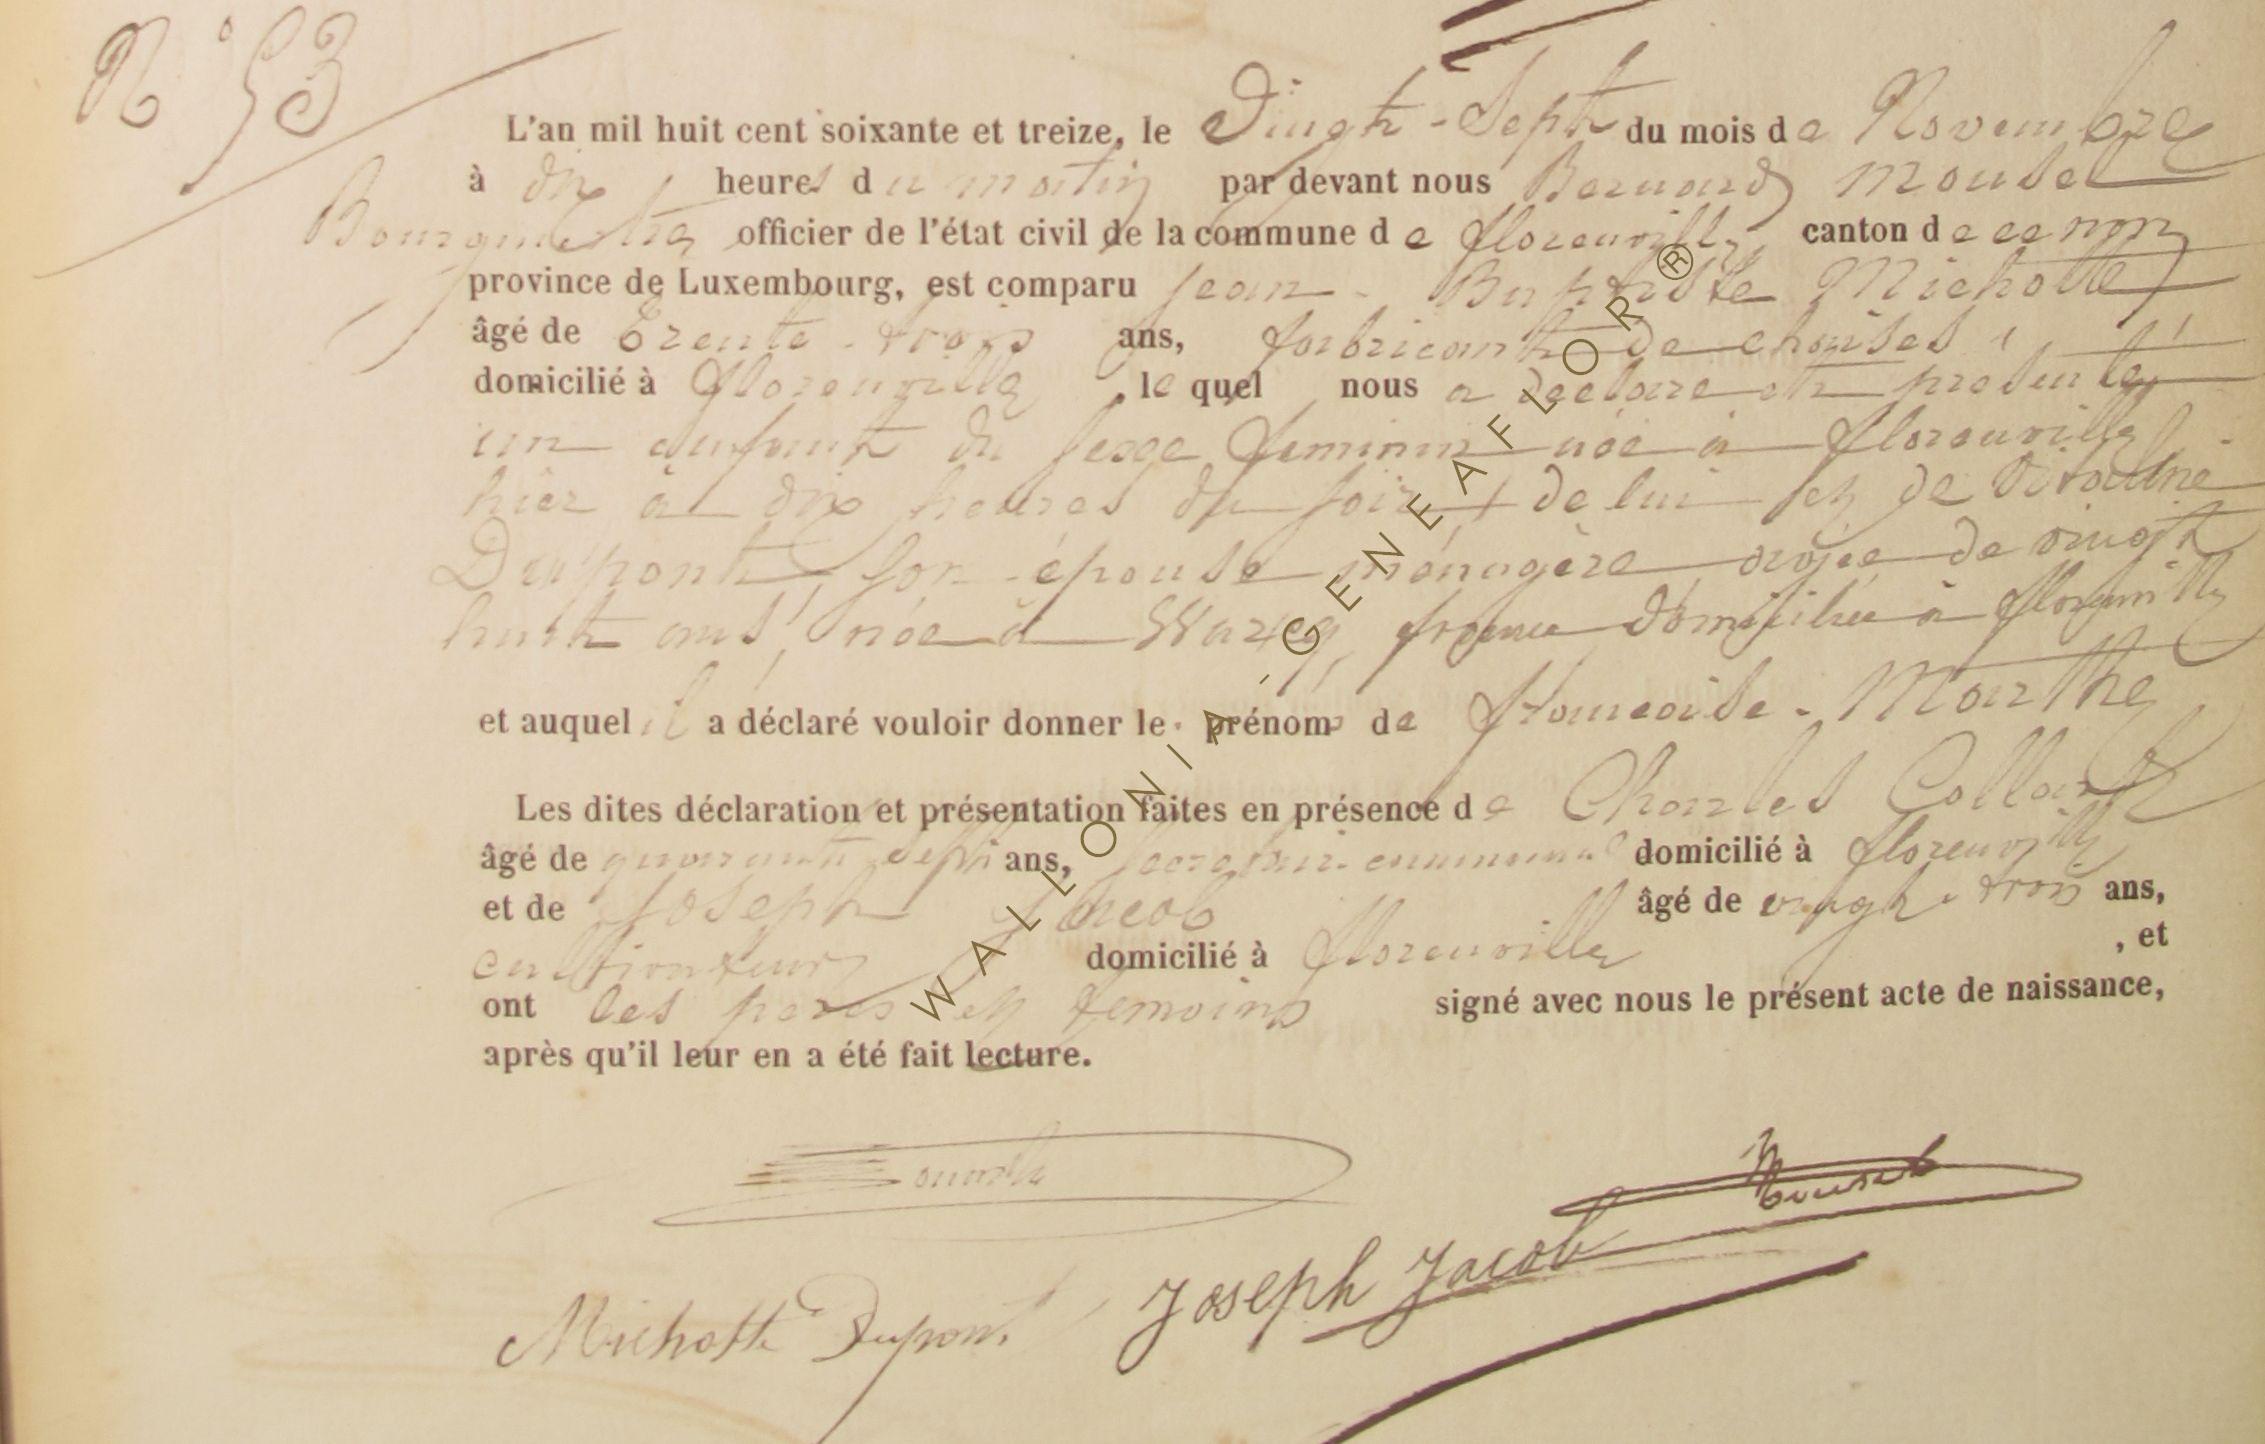 N° 53
L'an mil huit cent soixante et treize, le Vingt-Sept du mois de Novembre
à dix heures du matin par devant nous Bernard Mousel
Bourgmestre officier de l'état civil de la commune de florenville, canton de ce nom
province de Luxembourg, est comparu jean-Baptiste Michotte
âgé de Trente-trois ans, fabricant de chaises,
domicilié à florenville, le quel nous a déclaré et présenté
un enfant du sexe feminin née à florenville
hier à dix heures du soir de lui et de
Dupont, son épouse ménagère âgée de vingt
huit ans, née à france domiciliée à florenville
et auquel il a déclaré vouloir donner le prénom de françoise-Marthe
Les dites déclaration et présentation faites en présence de Charles Collart
âgé de quarante sept ans, secretaire communal domicilié à florenville
et de Joseph Jacob âgé de vingt-trois ans,
cultivateur domicilié à florenville, et
ont les peres et temoins signé avec nous le présent acte de naissance,
après qu'il leur en a été fait lecture.
Michotte Dupont Joseph Jacob
WALLONIA-GENEAFLOR®